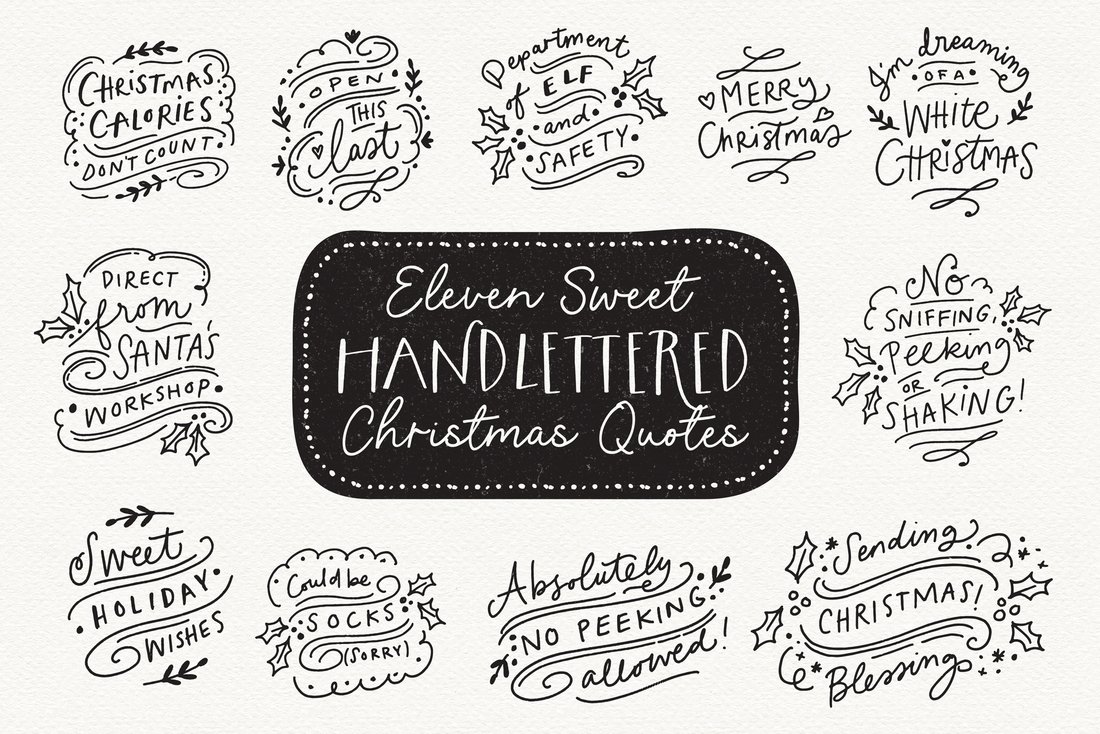 CHRISTMAS
CALORIES
DON'T COUNT
OPEN
THIS
last
Department
of ELF
and
SAFETY
MERRY
Christmas
I'm dreaming
OF A
WHITE
CHRISTMAS
DIRECT
from
SANTA'S
WORKSHOP
Eleven Sweet
HANDLETTERED
Christmas Quotes
No
SNIFFING,
Peeking
OR
SHAKING!
Sweet
HOLIDAY
WISHES
Could be
SOCKS
(SORRY)
Absolutely
NO PEEKING
allowed!
Sending
CHRISTMAS!
Blessings